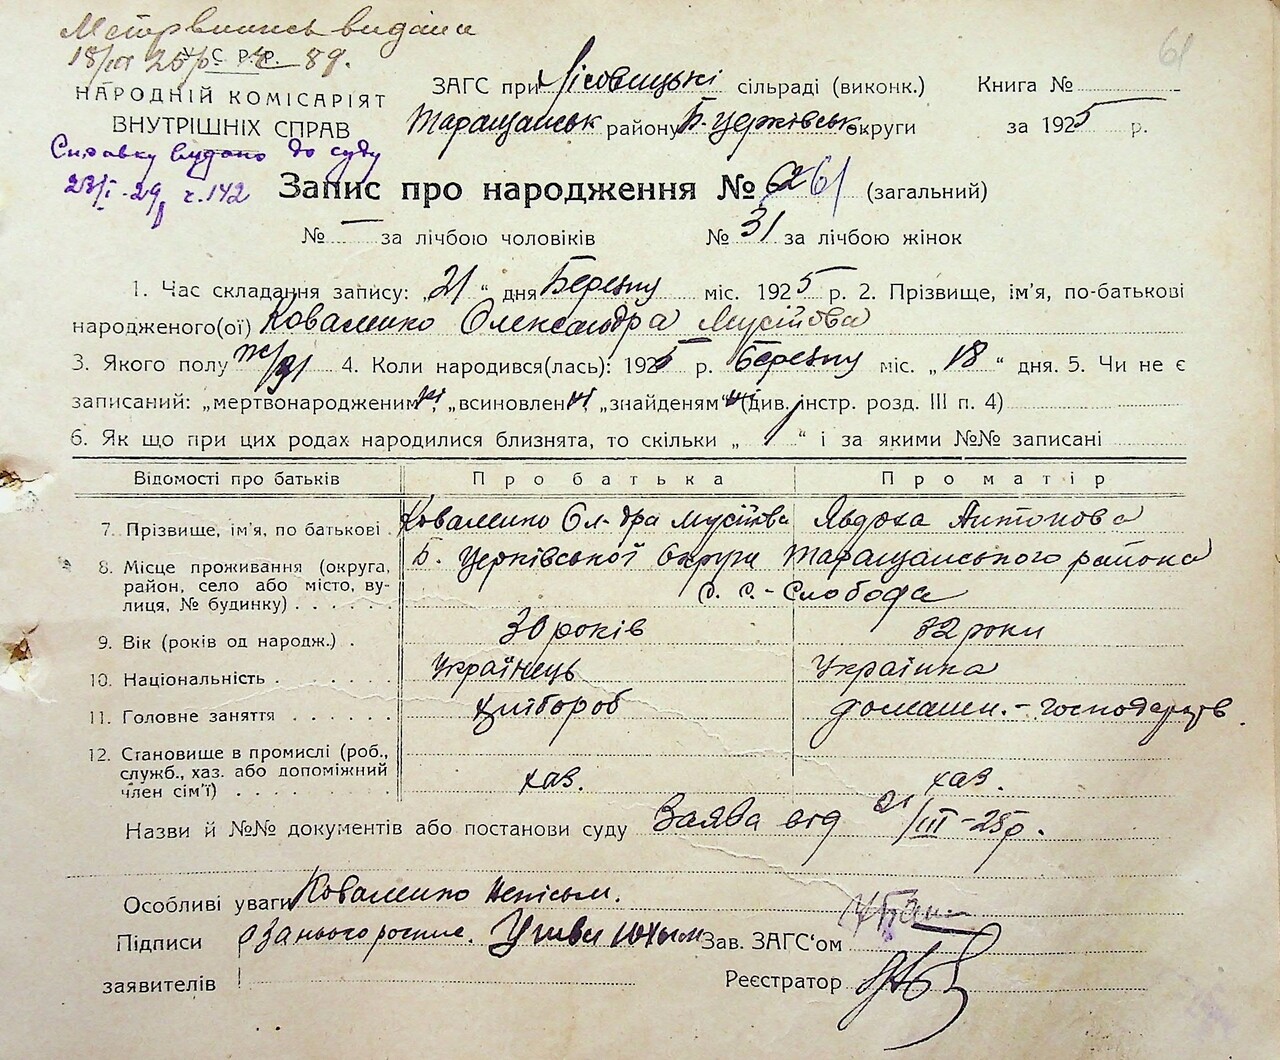 Метрвипись видана
18/III 25 р. ч 89.
У. С. Р. Р.
НАРОДНІЙ КОМІСАРІЯТ
ВНУТРІШНІХ СПРАВ
Справку видано до суду
23/I-29р ч. 142
61
ЗАГС при Лісовицькі сільраді (виконк.) Книга №
Таращанськ району Б. Церківськ округи за 1925 р.
Запис про народження № 61 (загальний)
№ — за лічбою чоловіків № 31 за лічбою жінок
1. Час складання запису: „21“ дня Березну міс. 1925 р. 2. Прізвище, ім'я, по-батькові
народженого(ої) Коваленко Олександра Мусіїова
3. Якого полу 4. Коли народився(лась): 1925 р. Березну міс. „18“ дня. 5. Чи не є
записаний: „мертвонародженим“, „всиновлен“ ні „знайденям“ ні (див. інстр. розд. III п. 4)
6. Як що при цих родах народилися близнята, то скільки „ “ і за якими №№ записані
Відомості про батьків Про батька Про матір
7. Прізвище, ім'я, по батькові . Коваленко Ол-дра Мусіїва Явдоха Антонова
8. Місце проживання (округа, Б. Церківської округи Таращанського района
район, село або місто, ву- с. с.-Слобода
лиця, № будинку) . . . . . .
9. Вік (років од народж.) . 30 років 32 роки
10. Національність . . . . . . Українець Українка
11. Головне заняття . . . . . . хлібороб домашн.-господарств
12. Становище в промислі (роб.,
служб., хаз. або допоміжний хаз. хаз.
член сім'ї) . . . . . . . . .
Назви й №№ документів або постанови суду Заява від 21/III-25р.
Особливі уваги Коваленко неписьм.
Підписи за нього роспис. Зав. ЗАГС'ом
заявителів Реєстратор